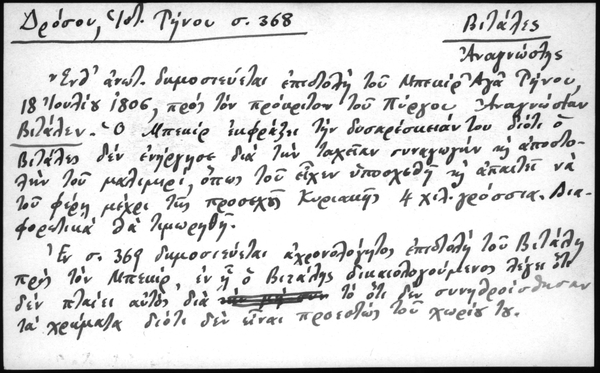 Δρόσου, Ἱστ. Τήνου σ. 368
Βιτάλης
Ἀναγνώστης
Ἔνθ' ἀνωτ. δημοσιεύεται ἐπιστολή τοῦ Μπεκίρ Ἀγᾶ Τήνου,
18 Ἰουλίου 1806, πρός τόν πρόκριτον τοῦ Πύργου Ἀναγνώστην
Βιτάλην. Ὁ Μπεκίρ ἐκφράζει τήν δυσαρέσκειάν του διότι ὁ
Βιτάλης δέν ἐνήργησε διά τήν ταχεῖαν συναγωγήν κ̣ ἀποστο-
λήν τοῦ μαξιμερί, ὅπως τοῦ εἶχεν ὑποσχεθῆ κ̣ ἀπαιτεῖ νά
τοῦ φέρῃ μέχρι τῆς προσεχοῦς Κυριακῆς 4 χιλ. γρόσσια. Δια-
φορετικά θά τιμωρηθῇ.
Ἐν σ. 369 δημοσιεύεται ἀχρονολόγητος ἐπιστολή τοῦ Βιτάλη
πρός τόν Μπεκίρ, ἐν ᾗ ὁ Βιτάλης δικαιολογούμενος λέγει ὅτι
δέν πταίει αὐτός διά τό ὅτι δέν συνηθροίσθησαν
τά χρήματα διότι δέν εἶναι προεστώς τοῦ χωρίου του.